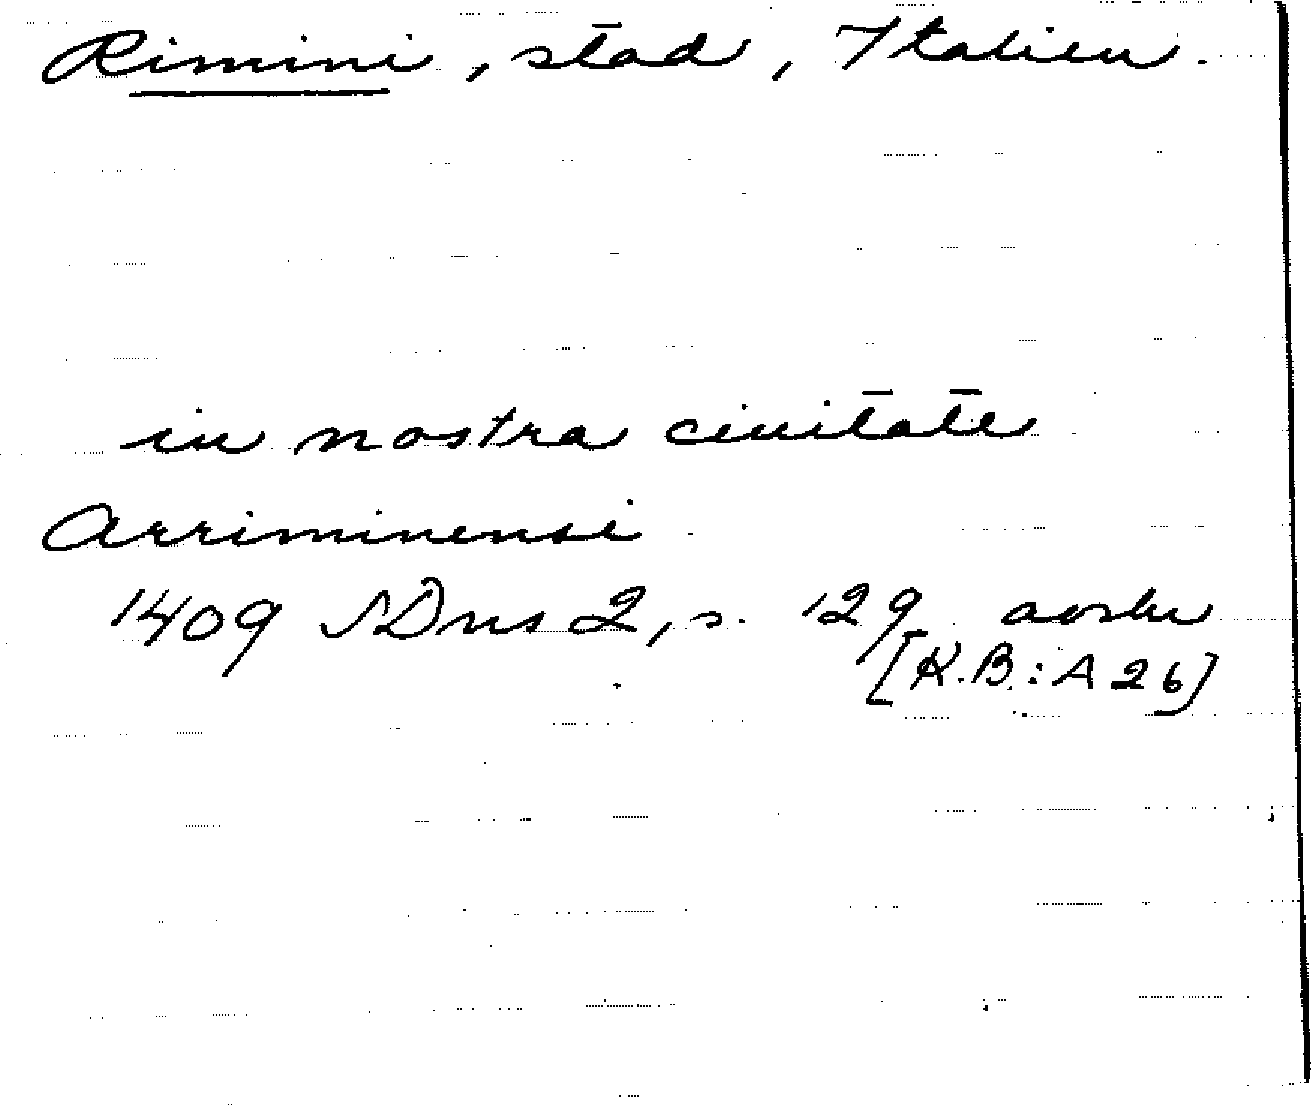 Rimini, stad, Italien.
in nostra ciuitate
Arriminensi
1409 SDns 2, s. 129 avskr
[K.B.: A 26]